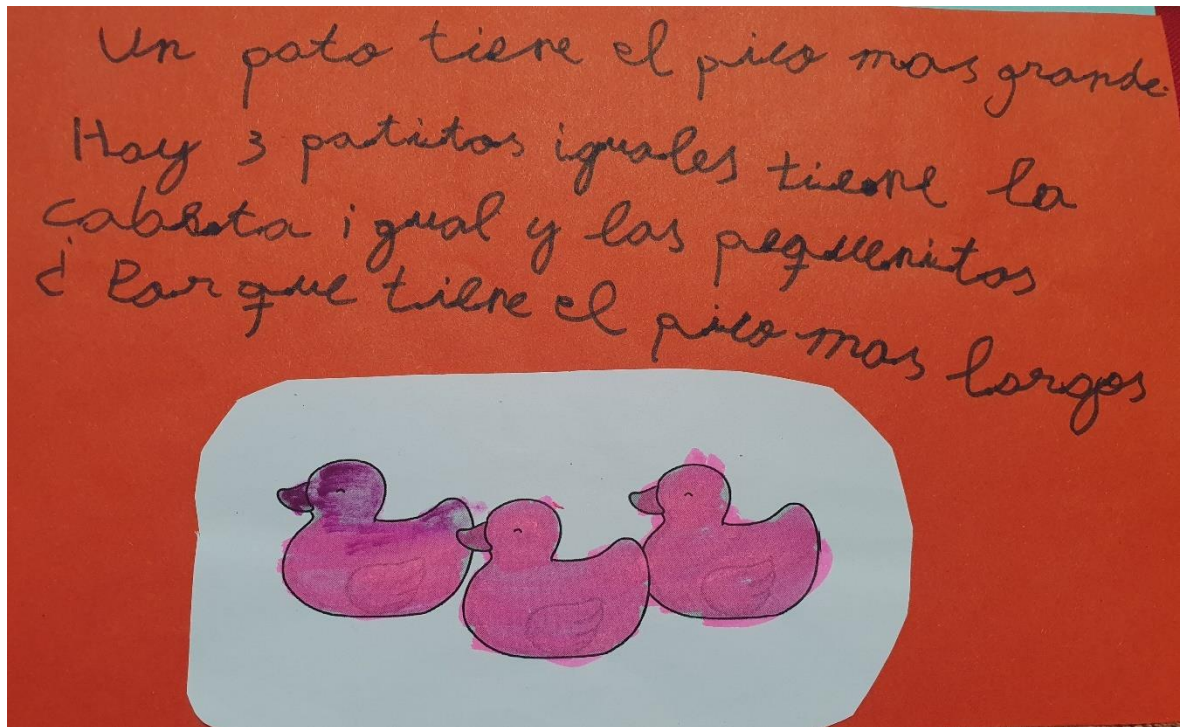 Un pato tiene el pico mas grande.
Hay 3 patitos iguales tiene la
cabesta igual y las pequenitos
¿Por que tiene el pico mas largos